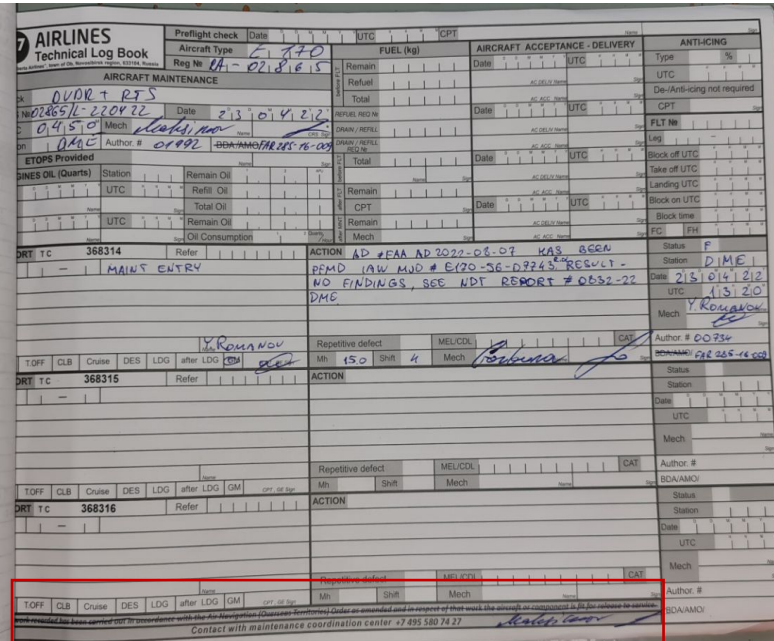 AIRLINES
Technical Log Book
Preflight check Date UTC CPT
Aircraft Type E 170
Reg № RA-02865
AIRCRAFT MAINTENANCE
DVDR + RTS
02865/L-220422 Date 23 04 22
0450 Mech Maksimov
DME Author. # 01992 BDA/AMO/FAR 285-16-009
ETOPS Provided
GINES OIL (Quarts) Station Remain Oil
UTC Refill Oil
Total Oil
UTC Remain Oil
Oil Consumption
FUEL (kg)
before FLT
Remain
Refuel
Total
REFUEL REQ №
DRAIN / REFILL
DRAIN / REFILL REQ №
before FLT
Total
after FLT
Remain
CPT
after MNT
Remain
Mech
AIRCRAFT ACCEPTANCE - DELIVERY
Date UTC
AC DELIV Name Sign
AC ACC Name Sign
Date UTC
AC DELIV Name Sign
AC ACC Name Sign
Date UTC
AC DELIV Name Sign
AC ACC Name Sign
Date UTC
AC DELIV Name Sign
AC ACC Name Sign
ANTI-ICING
Type %
UTC
De-/Anti-icing not required
CPT
FLT №
Leg
Block off UTC
Take off UTC
Landing UTC
Block on UTC
Block time
FC FH
ORT TC 368314
MAINT ENTRY
Y. ROMANOV
T.OFF CLB Cruise DES LDG after LDG GM
ACTION AD #FAA AD 2022-08-07 HAS BEEN
PFMD IAW MJO # E170-56-09743. RESULT -
NO FINDINGS, SEE NDT REPORT # 0832-22
DME
Repetitive defect MEL/CDL CAT
Mh 15.0 Shift 4 Mech
Status F
Station DME
Date 23 04 22
UTC 13 20
Mech Y. ROMANOV
Author. # 00734
BDA/AMO/ FAR 285-16-009
ORT TC 368315 Refer
T.OFF CLB Cruise DES LDG after LDG GM CPT, GE Sign
ACTION
Repetitive defect MEL/CDL CAT
Mh Shift Mech
Status
Station
Date
UTC
Mech
Author. #
BDA/AMO/
ORT TC 368316 Refer
T.OFF CLB Cruise DES LDG after LDG GM CPT, GE Sign
ACTION
Repetitive defect MEL/CDL CAT
Mh Shift Mech
Status
Station
Date
UTC
Mech
Author. #
BDA/AMO/
work recorded has been carried out in accordance with the Air Navigation (Overseas Territories) Order as amended and in respect of that work the aircraft or component is fit for release to service.
Contact with maintenance coordination center +7 495 580 74 27 Maksimov